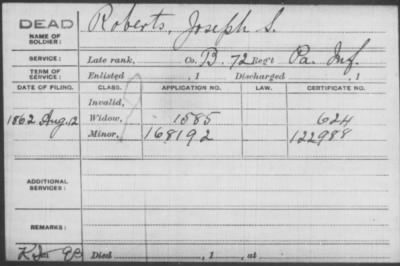 DEAD Roberts, Joseph S.
NAME OF SOLDIER:
SERVICE: Late rank, Co. B. 72 Reg't Pa. Inf.
TERM OF SERVICE: Enlisted , 1 Discharged , 1
DATE OF FILING. CLASS. APPLICATION NO. LAW. CERTIFICATE NO.
Invalid,
1862 Aug. 12 Widow, 1585 624
Minor, 168192 122988
ADDITIONAL SERVICES:
REMARKS:
Died , 1 , at